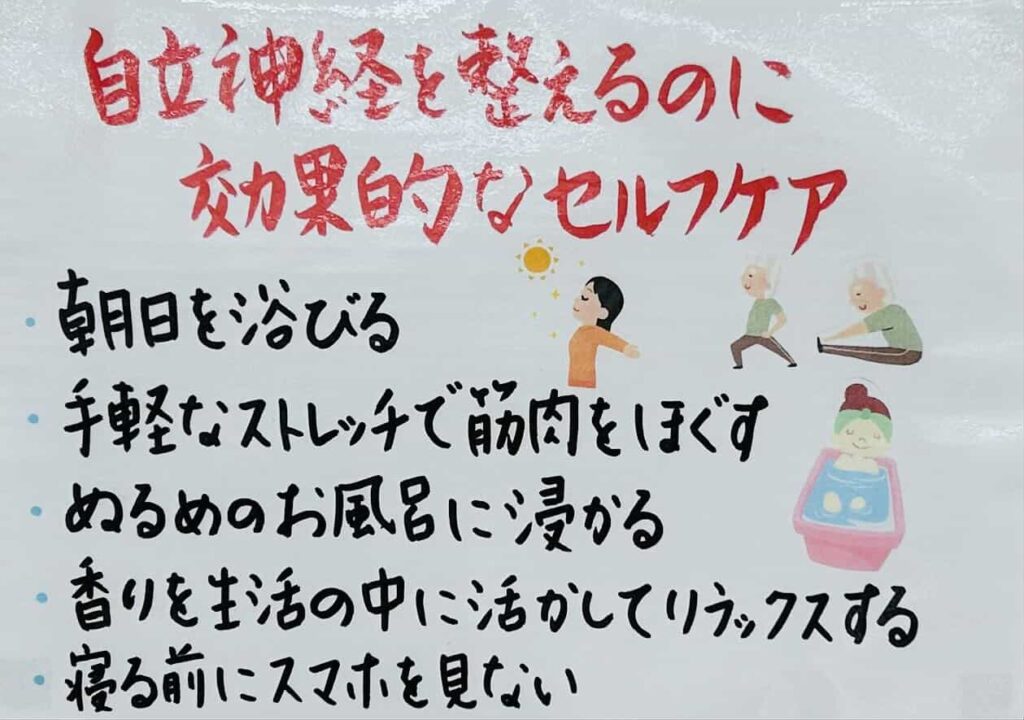 自立神経を整えるのに
効果的なセルフケア
・朝日を浴びる
・手軽なストレッチで筋肉をほぐす
・ぬるめのお風呂に浸かる
・香りを生活の中に活かしてリラックスする
・寝る前にスマホを見ない